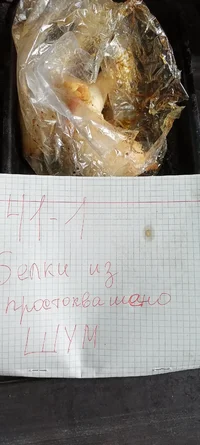 41-1
Белки из
простоквашено
ШУМ.